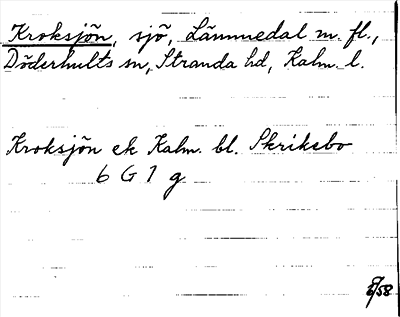 Kroksjön, sjö, Lämmedal m. fl.,
Döderhults sn, Stranda hd, Kalm. l.
Kroksjön ek Kalm. bl. Skriksbo
6 G 1 g